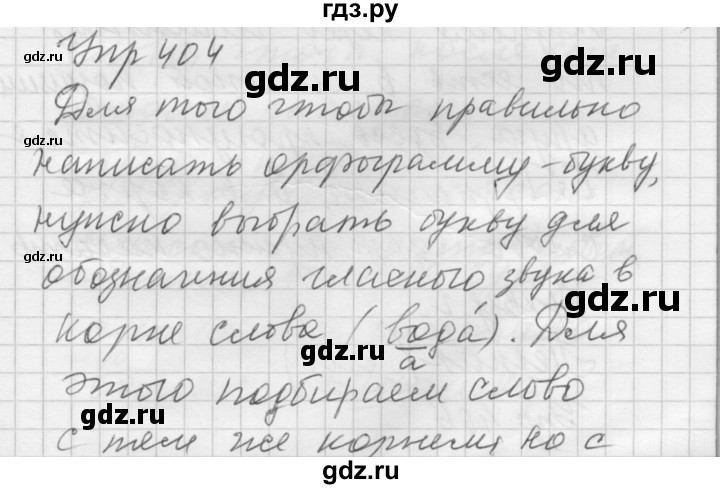 гдз.ру
Упр 404
gdz.ru gdz.ru
gdz.ru
Для того чтобы правильно
gdz.ru
написать орфограмму-букву,
gdz.ru gdz.ru
нужно выбрать букву для
gdz.ru
обозначения гласного звука в
gdz.ru
корне слова (вода́). Для
gdz.ru а
этого подбираем слово
gdz.ru gdz.ru
с тем же корнем, но с
gdz.ru
gdz.ru